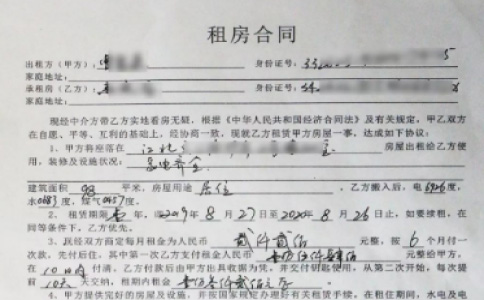 租房合同
出租方（甲方）：身份证号：
家庭地址：
承租房（乙方）：身份证号：
家庭地址：
现经中介方带乙方实地看房无疑，根据《中华人民共和国经济合同法》及有关规定，甲乙双方
在自愿、平等、互利的基础上，经协商一致，现就乙方租赁甲方房屋一事，达成如下协议：
1、甲方将座落在 江北 房屋出租给乙方使
用，装修及设施状况： 家电齐全
建筑面积 98 平米，房屋用途 居住 ，乙方搬入后，电 6926 度，
水 0683 度，煤气 0457 度。
2、租赁期限 壹 年，从 2019 年 8 月 27 日至 2020 年 8 月 26 日止，如要续租，在
同等条件下，乙方优先。
3、经双方商定每月租金为人民币 贰仟贰佰 元整，按 6 个月付一
次款，先付后住，其中第一次乙方支付租金人民币 元整给甲方，在
10日内 付清，乙方付款后由甲方出具收据为凭，并交付钥匙使用，从第二次开始，每次提
前 10天 天交纳，租赁押金人民币
4、甲方提供完好的房屋及设施，并按国家规定办理好有关手续，在租期内，水电及电